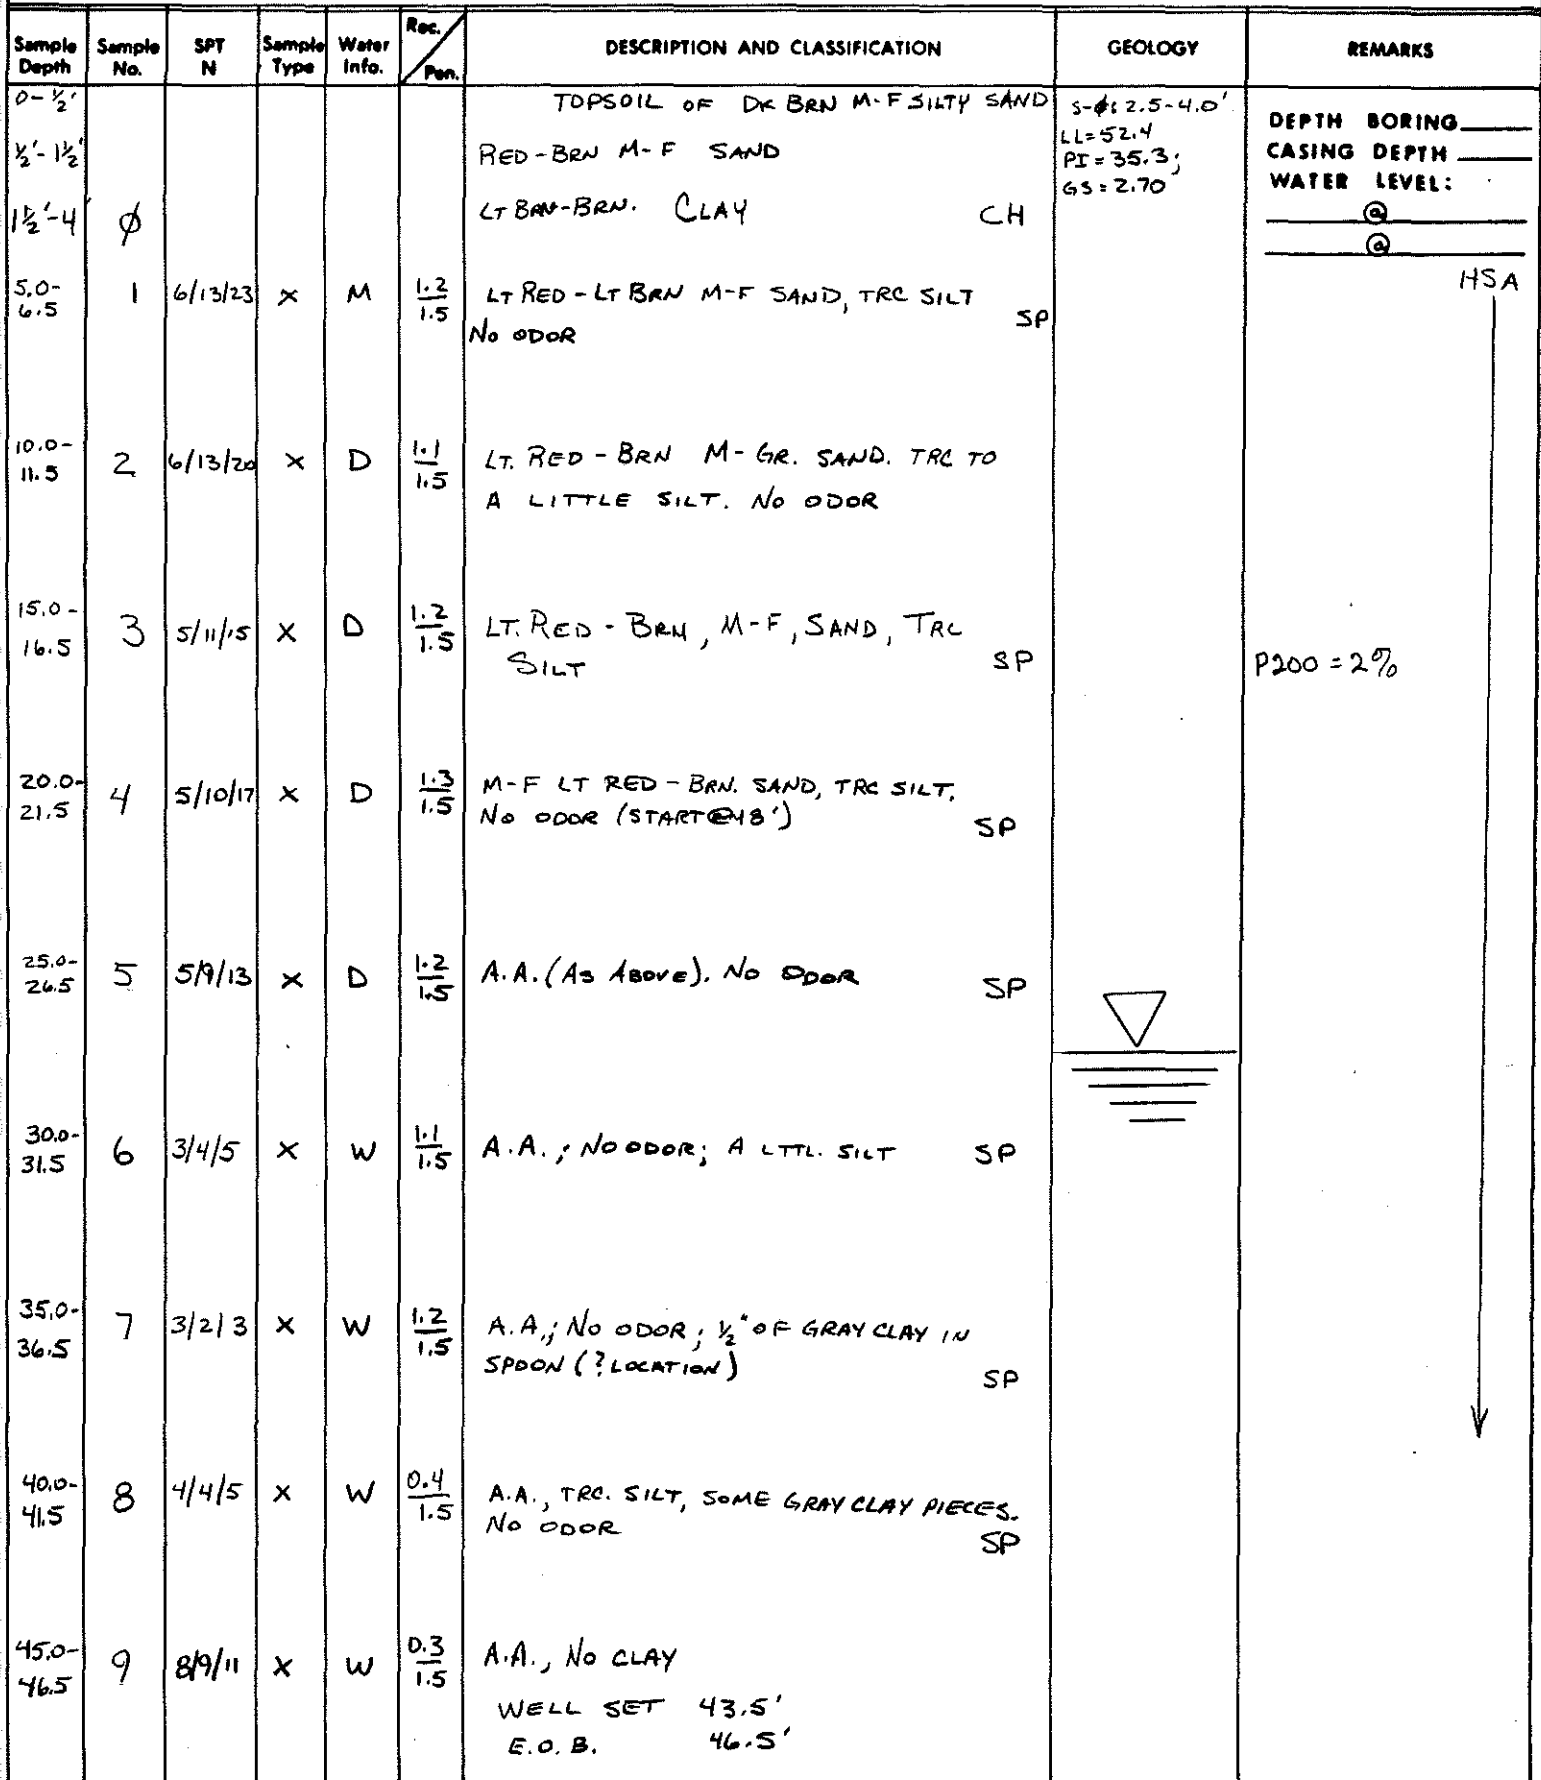 Sample Depth Sample No. SPT N Sample Type Water Info. Rec. / Pen. DESCRIPTION AND CLASSIFICATION GEOLOGY REMARKS
0-½' TOPSOIL OF DK BRN M-F SILTY SAND
½'-1½' RED-BRN M-F SAND
1½'-4' Ø LT BRN-BRN. CLAY CH
S-Ø: 2.5-4.0'
LL=52.4
PI=35.3;
GS=2.70
DEPTH BORING
CASING DEPTH
WATER LEVEL:
@
@
HSA
5.0-6.5 1 6/13/23 X M 1.2/1.5 LT RED-LT BRN M-F SAND, TRC SILT
NO ODOR SP
10.0-11.5 2 6/13/20 X D 1.1/1.5 LT. RED-BRN M-GR. SAND. TRC TO
A LITTLE SILT. NO ODOR
15.0-16.5 3 5/11/15 X D 1.2/1.5 LT. RED-BRN, M-F, SAND, TRC
SILT SP P200=2%
20.0-21.5 4 5/10/17 X D 1.3/1.5 M-F LT RED-BRN. SAND, TRC SILT.
NO ODOR (START@18') SP
25.0-26.5 5 5/9/13 X D 1.2/1.5 A.A. (AS ABOVE). NO ODOR SP
30.0-31.5 6 3/4/5 X W 1.1/1.5 A.A.; NO ODOR; A LTTL. SILT SP
35.0-36.5 7 3/2/3 X W 1.2/1.5 A.A.; NO ODOR; ½" OF GRAY CLAY IN
SPOON (?LOCATION) SP
40.0-41.5 8 4/4/5 X W 0.4/1.5 A.A., TRC. SILT, SOME GRAY CLAY PIECES.
NO ODOR SP
45.0-46.5 9 8/9/11 X W 0.3/1.5 A.A., NO CLAY
WELL SET 43.5'
E.O.B. 46.5'